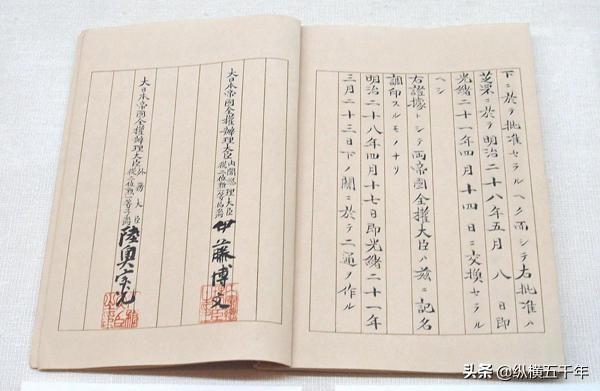 下ニ於テ批准セラルヘク而シテ右批准ハ
芝罘ニ於テ明治二十八年五月八日即
光緒二十一年四月十四日ニ交換セラル
ヘシ
右證據トシテ両帝國全權大臣ハ茲ニ記名
調印スルモノナリ
明治二十八年四月十七日即光緒二十一年
三月二十三日下ノ關ニ於テ二通ヲ作ル
大日本帝國全權辦理大臣內閣總理大臣從二位勳一等伯爵伊藤博文
大日本帝國全權辦理大臣外務大臣從二位勳一等子爵陸奥宗光
头条 @纵横五千年